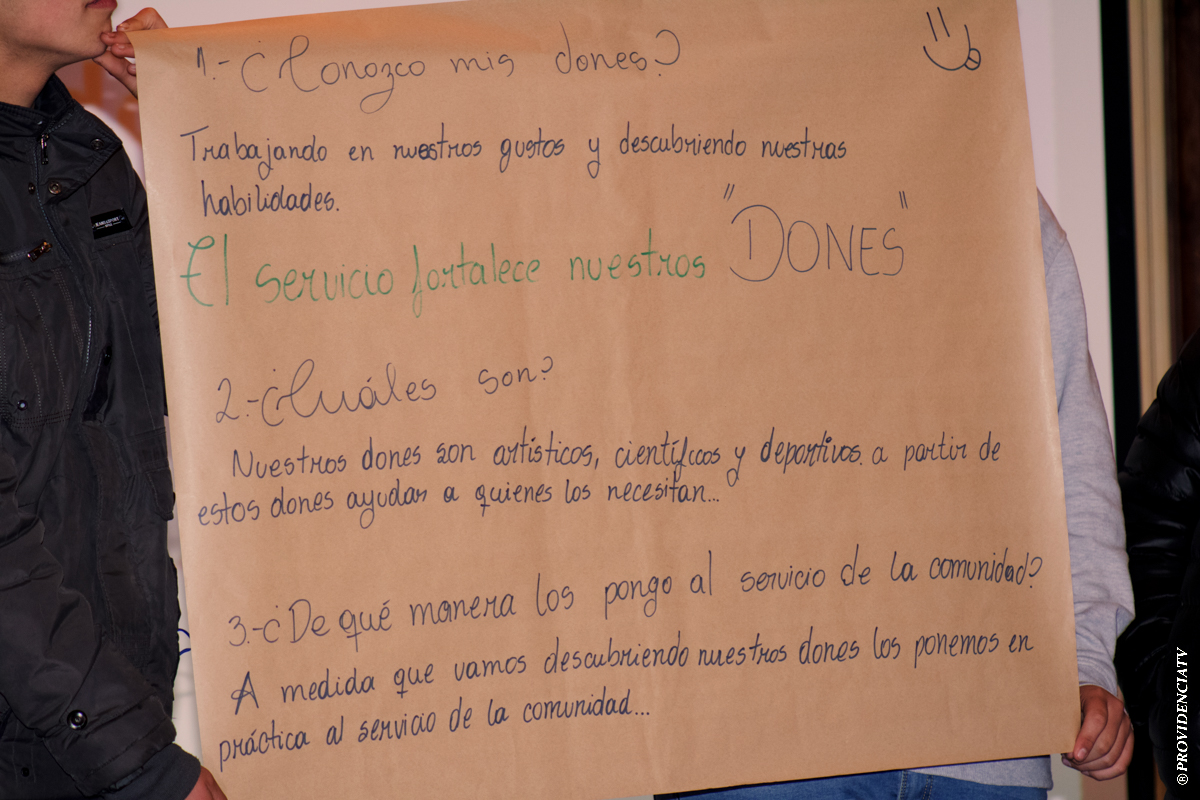 1.- ¿Conozco mis dones?
Trabajando en nuestros gustos y descubriendo nuestras
habilidades.
El servicio fortalece nuestros "DONES"
2.- ¿Cuáles son?
Nuestros dones son artísticos, científicos y deportivos. a partir de
estos dones ayudar a quienes los necesitan...
3.- ¿De qué manera los pongo al servicio de la comunidad?
A medida que vamos descubriendo nuestros dones los ponemos en
práctica al servicio de la comunidad...
® PROVIDENCIATV